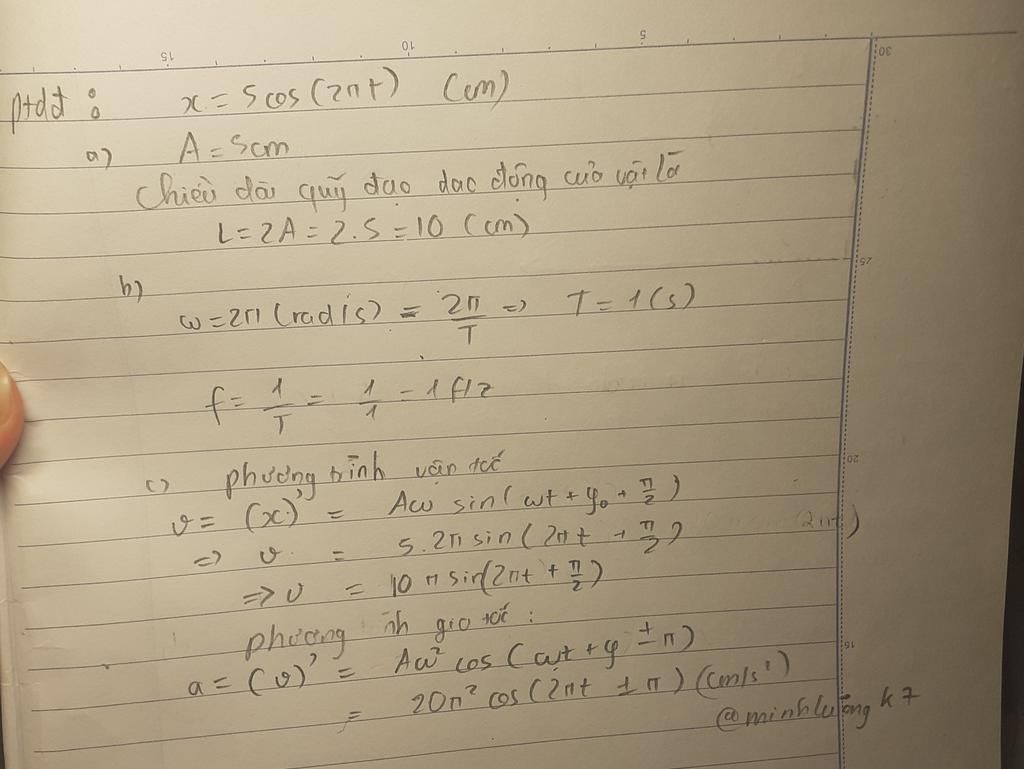 ptdđ : x = 5 cos (2πt) (cm)
a) A = 5cm
Chiều dài quỹ đạo dao động của vật là
L = 2A = 2.5 = 10 (cm)
b)
ω = 2π (rad/s) = 2π/T => T = 1 (s)
f = 1/T = 1/1 = 1 Hz
c) phương trình vận tốc
v = (x)' = Aω sin(ωt + φ₀ + π/2)
=> v = 5.2π sin(2πt + π/2)
=> v = 10π sin(2πt + π/2)
phương ình gia tốc :
a = (v)' = Aω² cos(ωt + φ ± π)
= 20π² cos(2πt ± π) (cm/s²)
@minhlưỡng k7
15
10
5
30
25
20
15